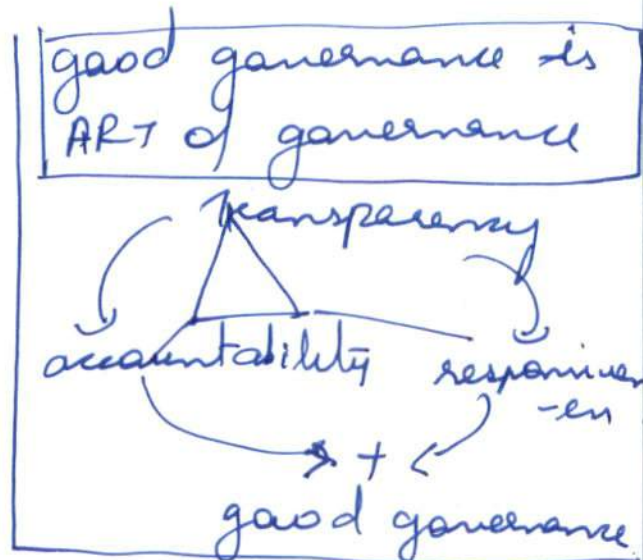 good governance is
ART of governance
transparency
accountability responsiven
-ess
+
good governance